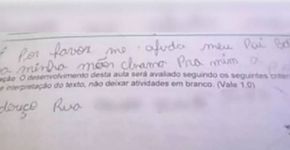 Por favor me ajuda meu Pai
a minha mãe chama Pra mim a
ação O desenvolvimento desta aula será avaliado seguindo os seguintes criter
e interpretação do texto, não deixar atividades em branco. (Vale 1,0)
Rua